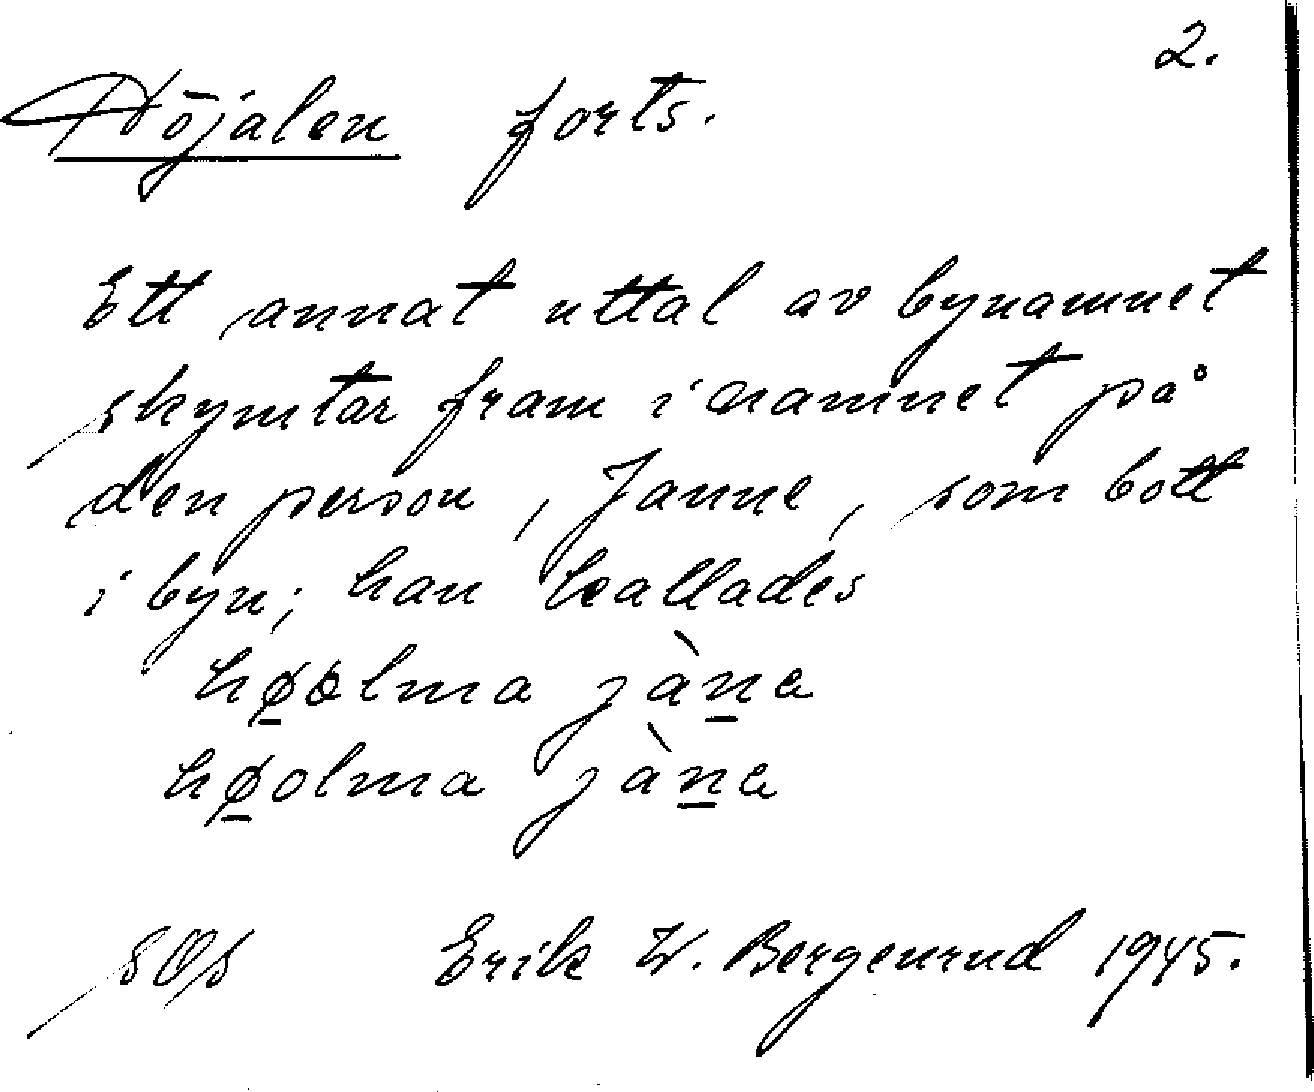 2.
Höjalen forts.
Ett annat uttal av bynamnet
skymtar fram i namnet på
den person, Janne, som bott
i byn; han kallades
hø̱ølma jàṉa
hø̱olma jàṉa
SOS Erik W. Bergenrud 1945.